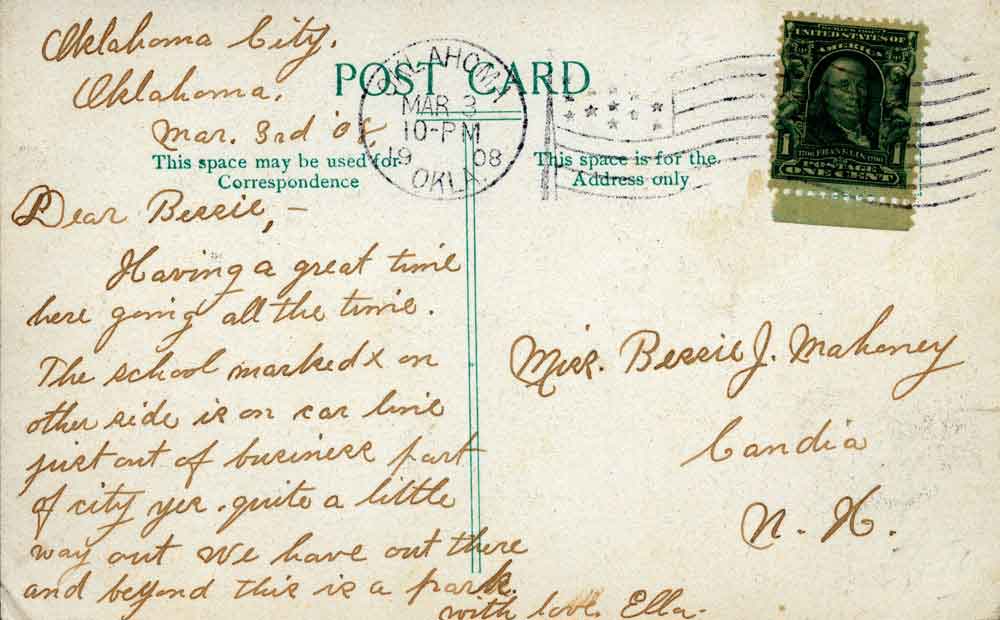 Oklahoma City,
Oklahoma.
Mar. 3rd '08
POST CARD
This space may be used for
Correspondence
This space is for the
Address only
OKLAHOMA
MAR 3
10-PM
1908
OKLA.
SERIES 1902
UNITED STATES OF
AMERICA
1706 FRANKLIN 1790
1 POSTAGE 1
ONE CENT
Dear Bessie, -
Having a great time
here going all the time.
The school marked x on
other side is on car line
just out of business part
of city yes. quite a little
way out We have out there
and beyond this is a park.
with love. Ella.
Miss. Bessie J. Mahoney
Candia
N. H.